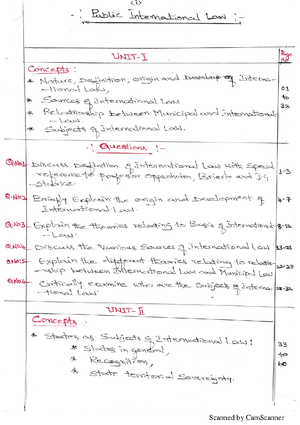 (1)
-: Public International Law :-
UNIT-I
Page No
Concepts :
* Nature, Definition, origin and of Interna-
-tional Law, 01
* Sources of International Law to
* Relationship between Municipal and International 32
-Law.
* Subjects of International Law.
-: Questions :-
Q.No1. Discuss Definition of International Law with Special
reference to professor Oppenheim, Brierly and J.G 1-3
-Starke.
Q.No:2. Briefly Explain the origin and Development of 4-7
International Law.
Q.No3. Explain the theories relating to Basis of International 8-12
Law
Q.No4. Discuss the Various Sources of International Law 13-21
Q.No:5. Explain the different theories relating to relatio- 22-27
-nship between International Law and Municipal Law
Q.No6. Critically examine who are the Subject of Interna- 28-32
-tional Law
UNIT-II
Concepts :
* States as Subjects of International Law: 33
* States in general, to
* Recognition, 60
* State territorial Sovereignty.
Scanned by CamScanner